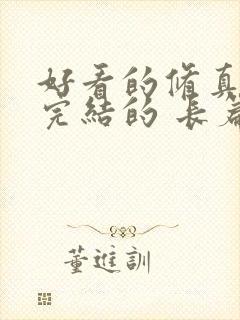 好看的脩真
完結的 長篇
董進訓